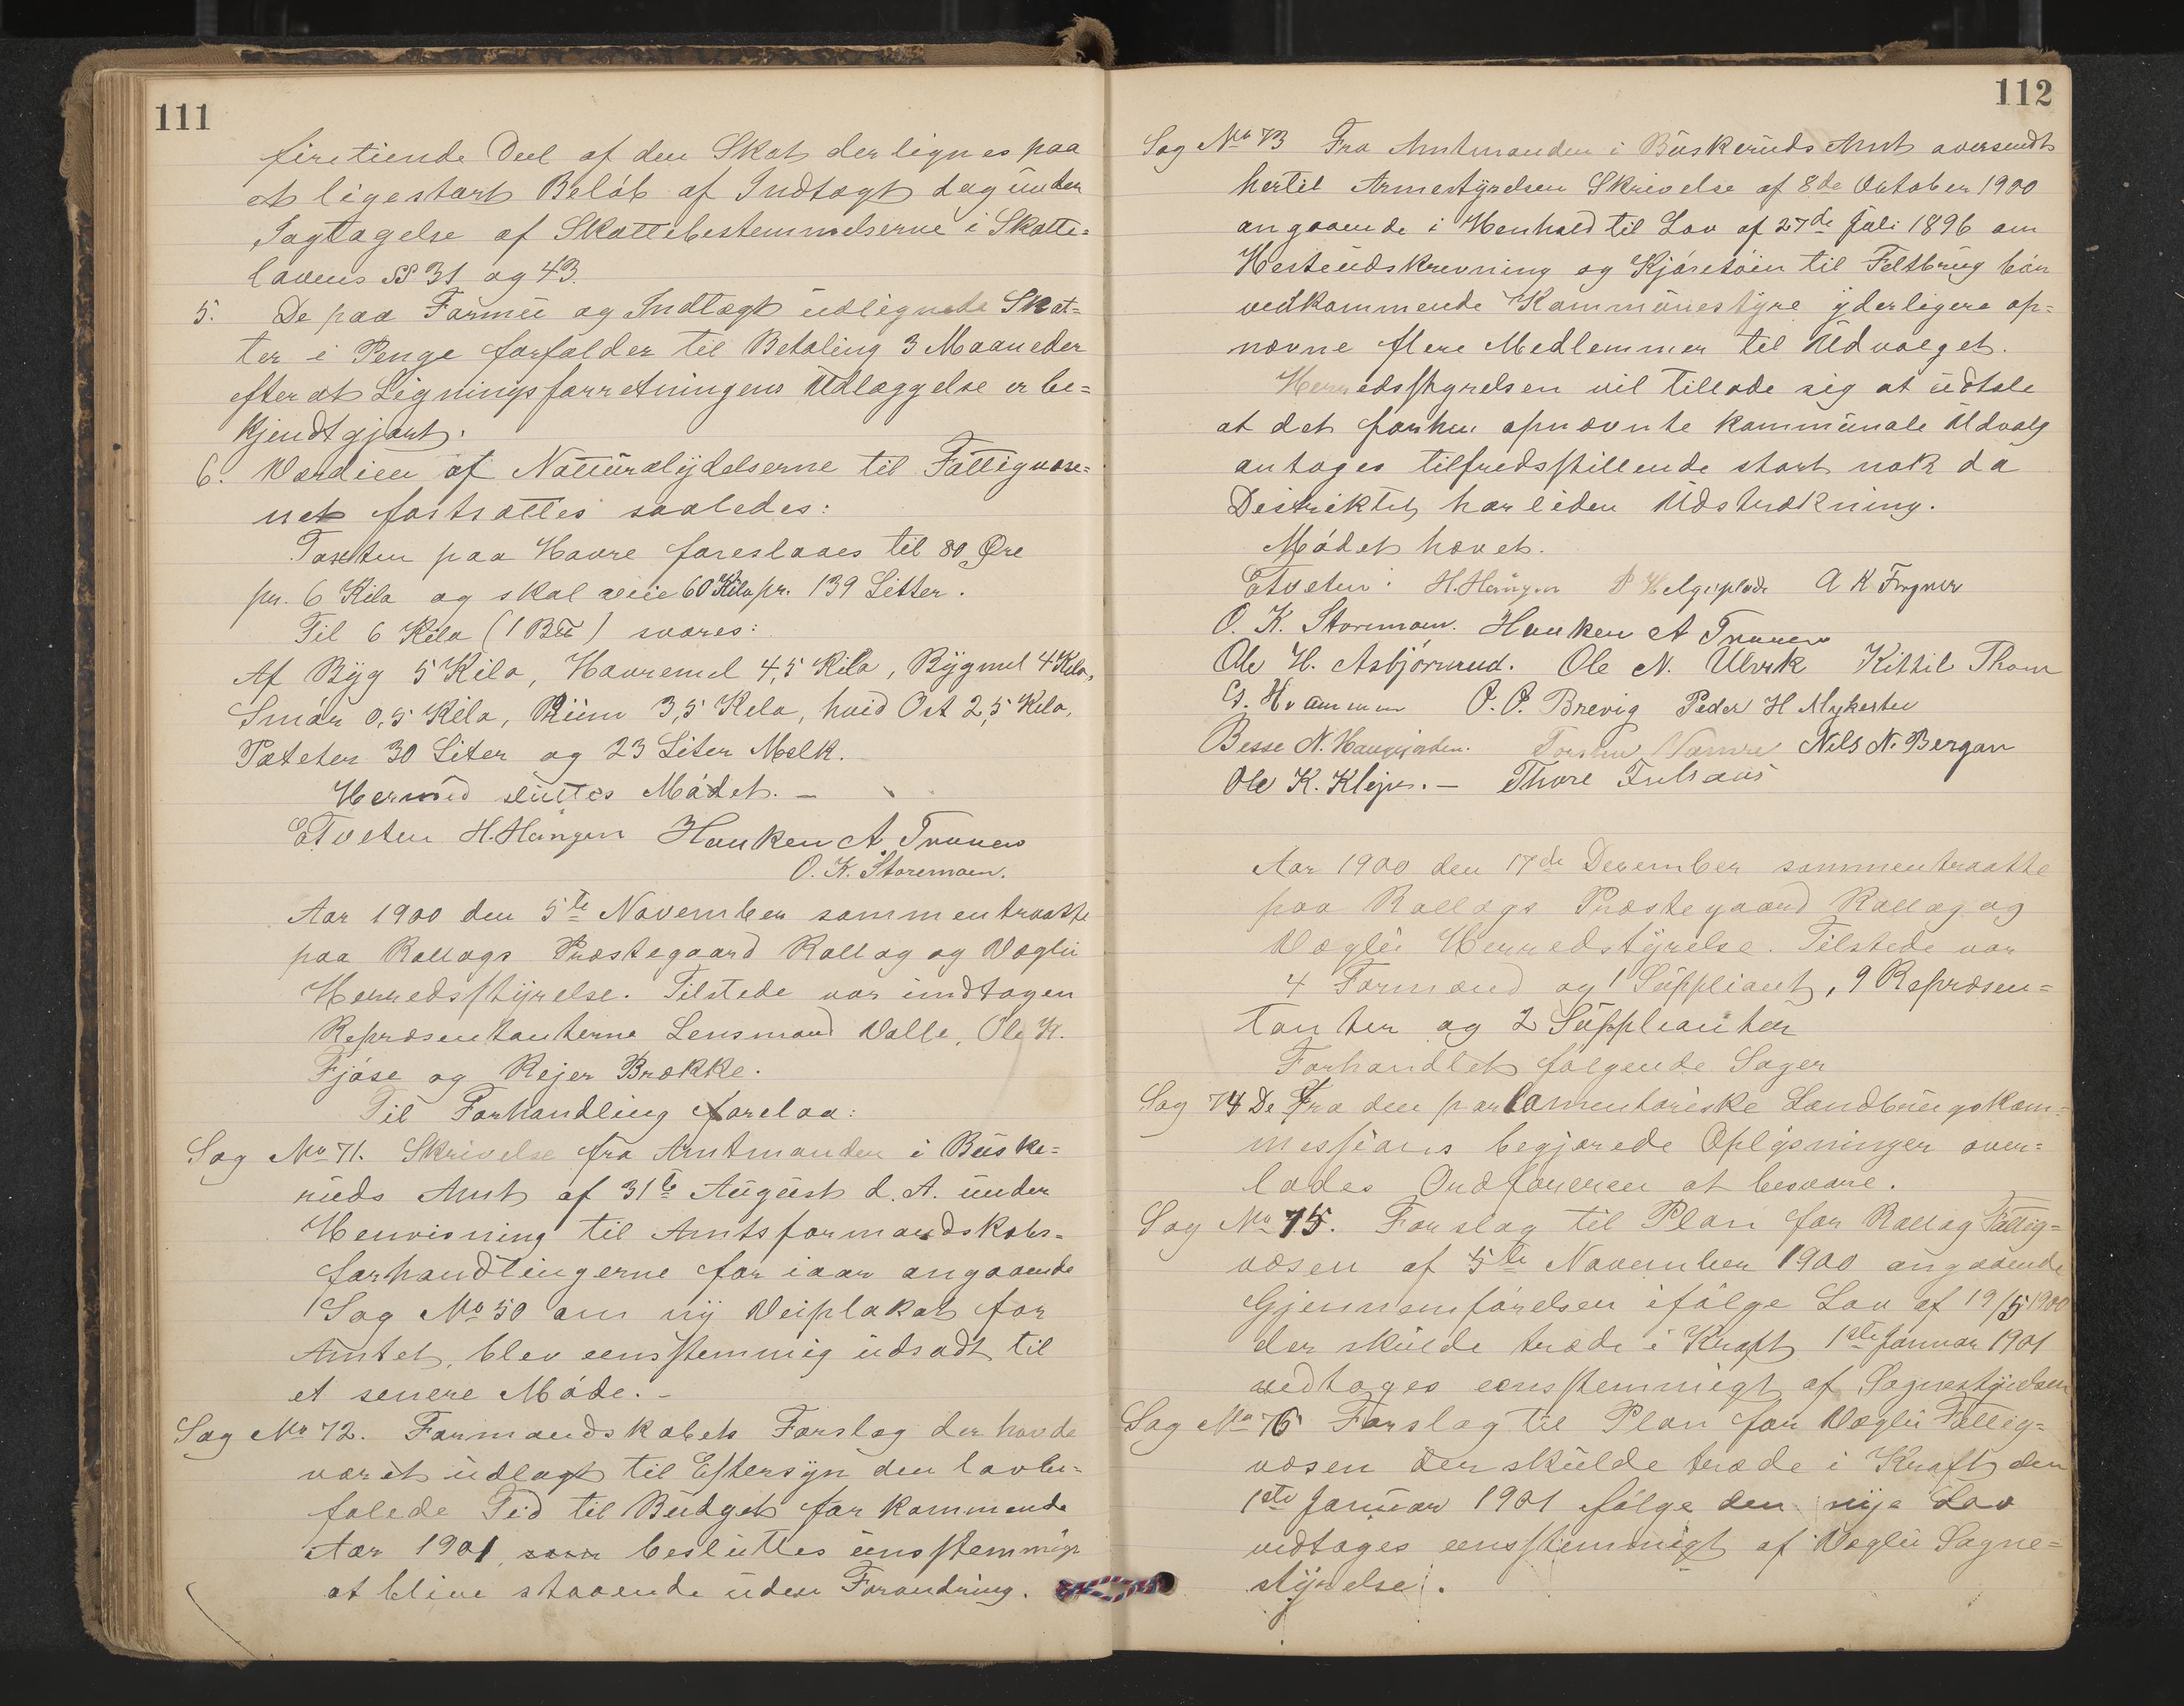 111
firetiende Deel af den Skat der lignes paa
et ligestort Beløb af Indtægt dog under
Iagtagelse af Skattebestemmelserne i Skatte=
lovens §§ 31 og 43.
5. De paa Formue og Indtægt udlignede Skat=
ter i Penge forfalder til Betaling 3 Maaneder
efter at Ligningsforretningens Udlæggelse er be=
kjendtgjort.
6. Værdien af Naturalydelserne til Fattigvæse=
net fortsættes saaledes:
Taxten paa Havre foreslaaes til 80 Øre
pr. 6 Kilo og skal veie 60 Kilo pr. 139 Litter.
Til 6 Kilo (1 ) svares:
Af Byg 5 Kilo, Havremel 4,5 Kilo, Bygmel 4 Kilo,
Smør 0,5 Kilo, Primo 3,5 Kilo, hvid Ost 2,5 Kilo,
Poteter 30 Liter og 23 Liter Melk.
Hermed sluttes Mødet. –
E Tveten H. Haugen Haaken A Traaen
O. K. Storemoen.
Aar 1900 den 5te November sammentraatte
paa Rollags Præstegaard Rollag og Veglie
Herredsstyrelse. Tilstede var undtagen
Repræsentanterne Lensmand Valle, Ole K.
Fjøse og Rejer Brække.
Til Forhandling forelaa:
Sag No 71. Skrivelse fra Amtmanden i Buske=
ruds Amt af 31te August d. A. under
Henvisning til Amtsformandskabs=
forhandlingerne for iaar angaaende
Sag No 50 om ny Veiplakat for
Amtet, blev eensstemmig udsadt til
et senere Møde. –
Sag No 72. Formandskabets Forslag der havde
været udlagt til Eftersyn den lovbe=
falede Tid til Budget for kommende
Aar 1901, som besluttes eensstemmigt
at blive staaende uden Forandring.
112
Sag No 73 Fra Amtmanden i Buskeruds Amt oversendt
hertil Armestyrelsen Skrivelse af 8de Oktober 1900
angaaende i Henhold til Lov af 27de Juli 1896 om
Hesteudskrevning og Kjøretøier til Feltbrug bør
vedkommende Kommunestyre yderligere op=
nævne flere Medlemmer til Udvalget.
Herredsstyrelsen vil tillade sig at udtale
at det forhen opnævnte kommunale Udvalg
antages tilfredsstillende stort nok da
Distriktet har liden Udstrækning.
Mødet hævet.
E Tveten. H. Haugen P Helgeplads A K Fogner
O. K. Storemoen. Haaken A Traaen
Ole H. Asbjørnrud. Ole N. Ulvik Kittil Thom
G. Hvammen O. O. Brevig Peder H Mykerten
Besse N. Haugjorden. Torsten Næmre Nils N. Bergan
Ole K. Kleiv. – Thore
Aar 1900 den 17de December sammentraatte
paa Rollags Præstegaard Rollag og
Veglie Herredstyrelse. Tilstede var
4 Formænd og 1 Suppliant, 9 Repræsen=
tanter og 2 Supplianter
Forhandlet følgende Sager
Sag 74 De Fra den parlamentariske Landbrugskom=
messions begjærede Oplysninger over=
lades Ordføreren at besvare.
Sag No 75. Forslag til Plan for Rollag Fattig=
væsen af 5te November 1900 angaaende
Gjennemførelsen ifølge Lov af 19/5 1900
der skulde træde i Kraft 1ste Januar 1901
vedtages eensstemmigt af Sognestyrelsen
Sag No 76 Forslag til Plan for Veglie Fattig=
væsen der skulde træde i Kraft den
1ste Januar 1901 følge den nye Lov
vedtages eensstemmigt af Veglie Sogne=
styrelse.